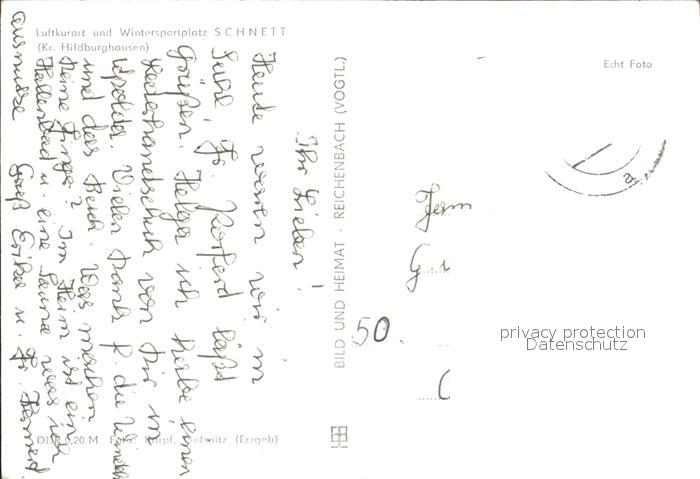 Luftkurort und Wintersportplatz SCHNETT
(Kr. Hildburghausen)
Echt Foto
Ihr Lieben!
Heute waren wir in
Suhl, Fr. läßt
Grüßen. Helga ich habe einen
Lederhandschuh von Dir in
Vielen Dank f. die
und das Buch. Was machen
Deine Finger? Im Heim ist ein
Hallenbad u. eine Sauna was ich
ausnutze Gruß Erika u.
BILD UND HEIMAT · REICHENBACH (VOGTL.)
50.
a
privacy protection
Datenschutz
DDR 0,20 M Foto: Karpf, Oelsnitz (Erzgeb)